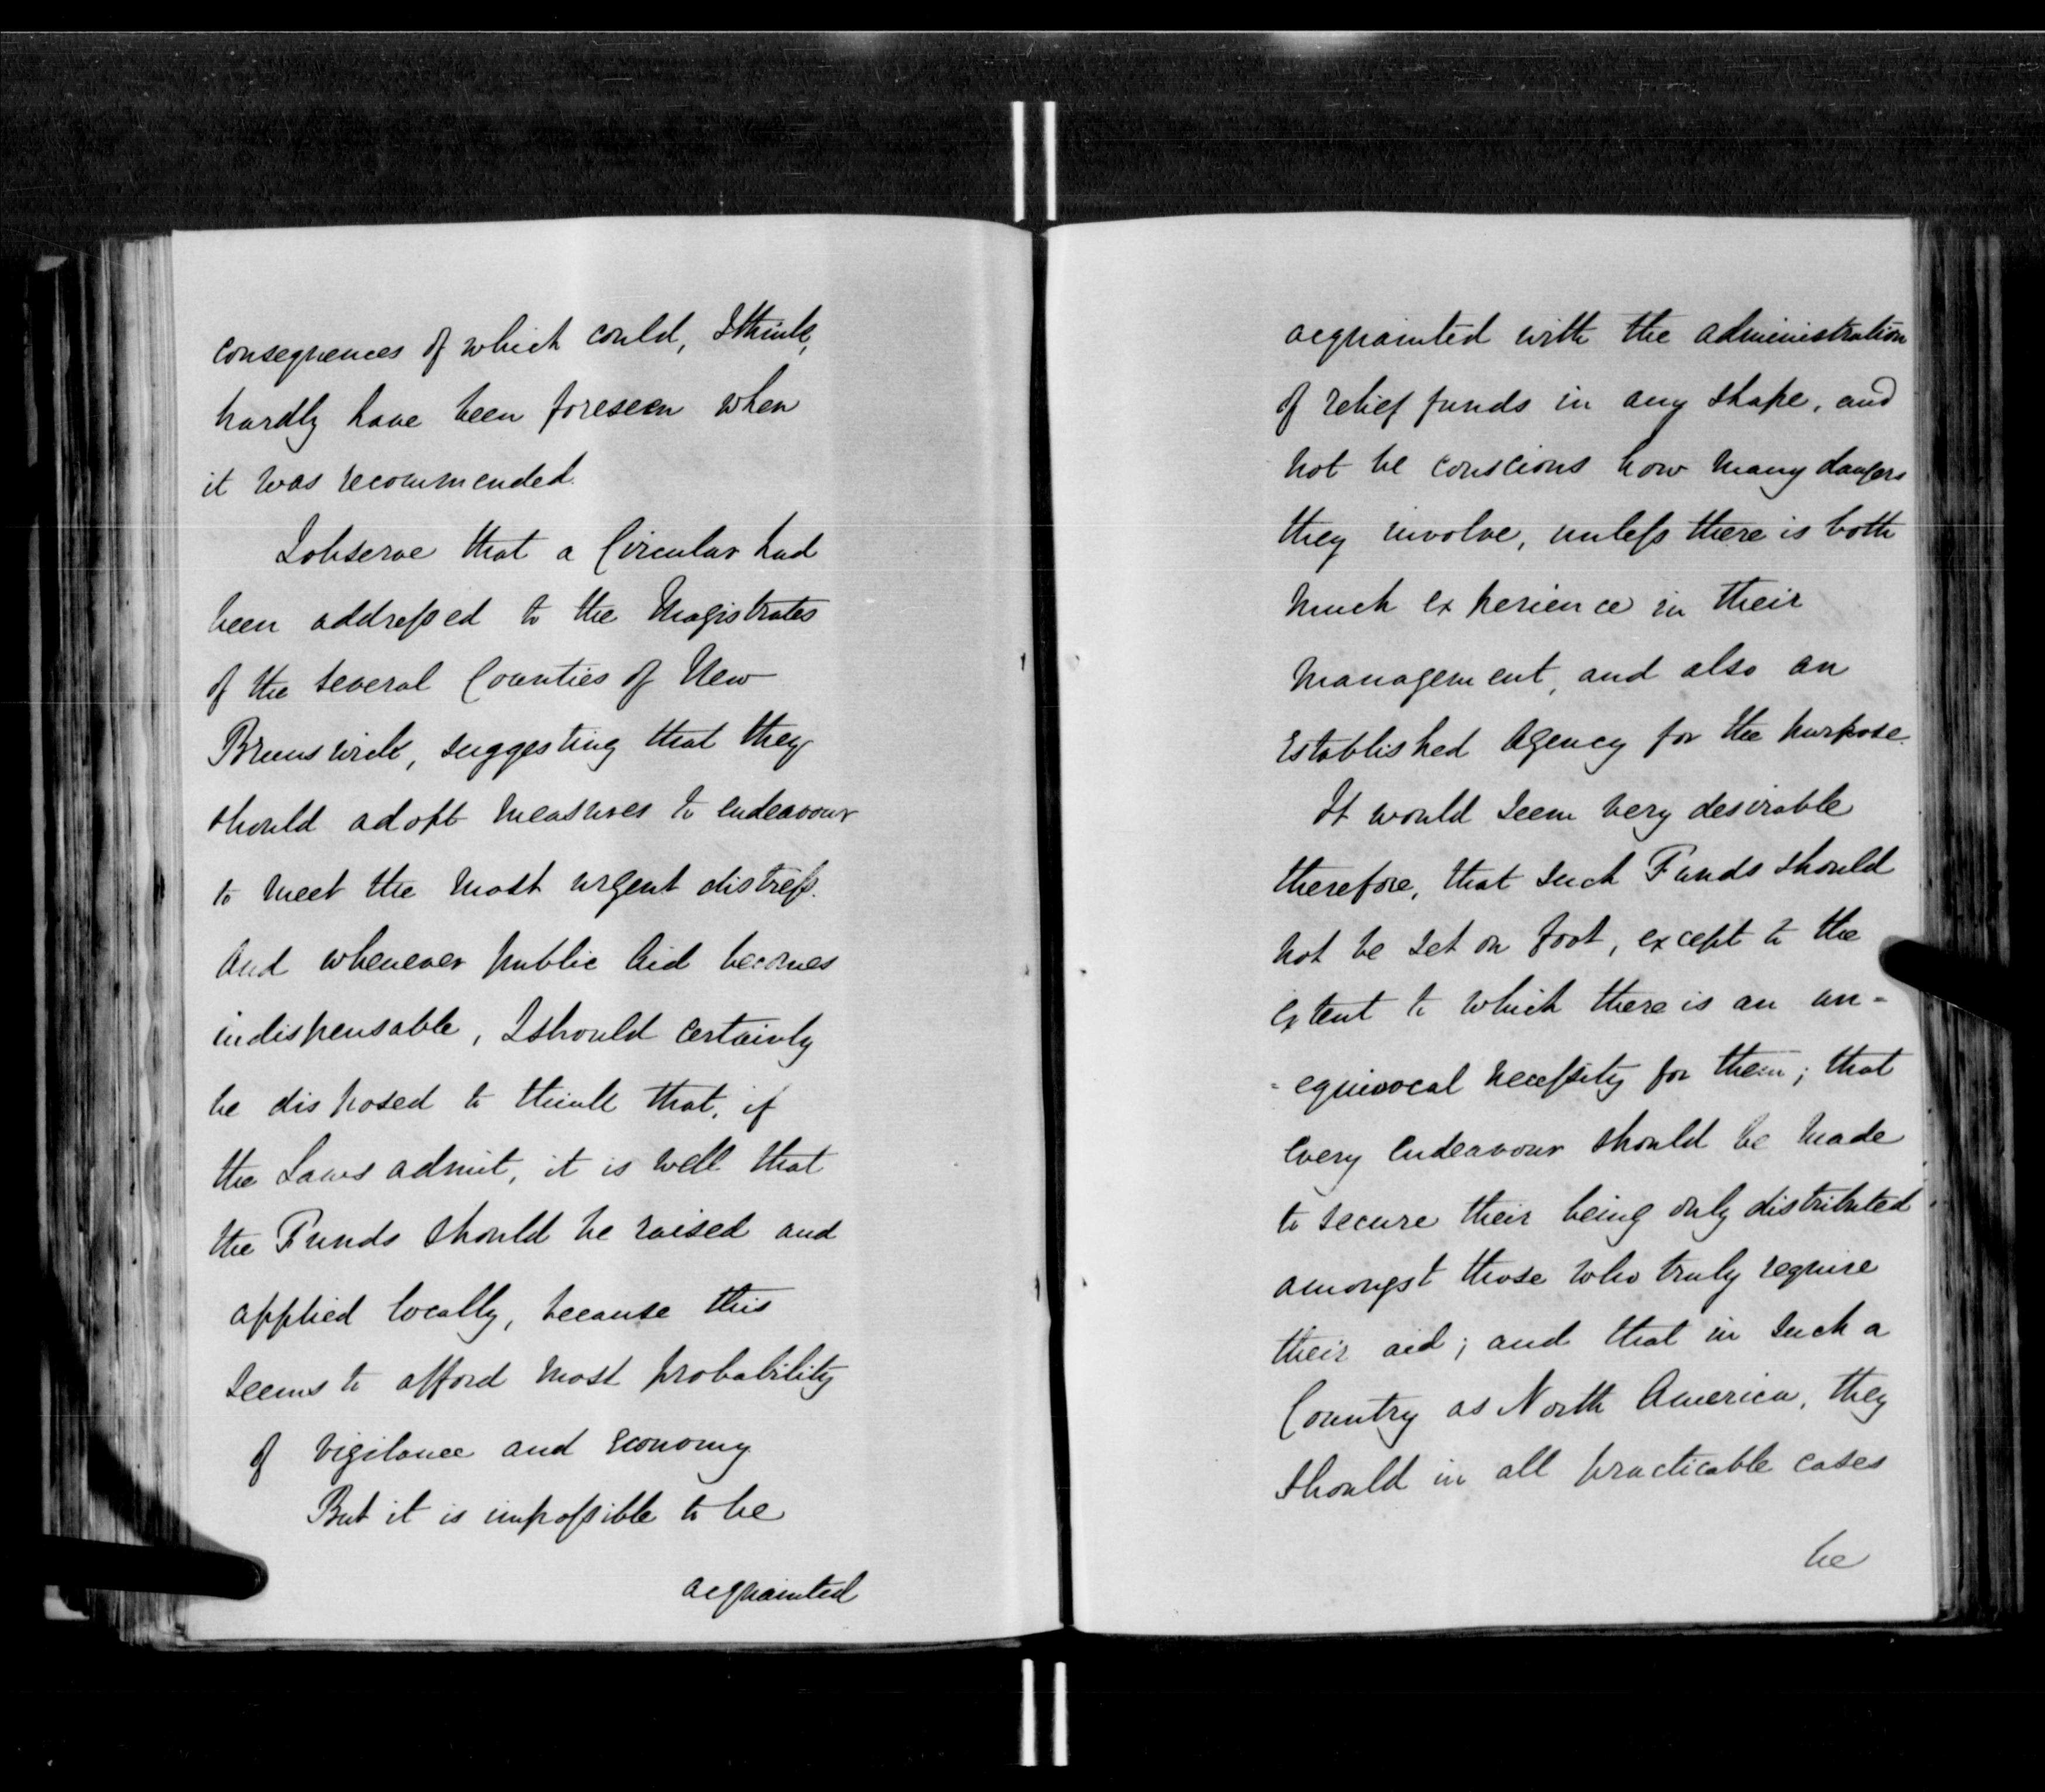 consequences of which could, I think,
hardly have been foreseen when
it was recommended.
I observe that a Circular had
been addressed to the Magistrates
of the several Counties of New
Brunswick, suggesting that they
should adopt measures to endeavour
to meet the most urgent distress.
And whenever public Aid becomes
indispensable, I should certainly
be disposed to think that, if
the Laws admit, it is well that
the Funds should be raised and
applied locally, because this
seems to afford most probability
of vigilance and economy
But it is impossible to be
acquainted
acquainted with the administration
of relief funds in any shape, and
not be conscious how many dangers
they involve, unless there is both
much experience in their
management, and also an
established Agency for the purpose.
It would seem very desirable
therefore, that such Funds should
not be set on foot, except to the
extent to which there is an un=
=equivocal necessity for them; that
every endeavour should be made
to secure their being only distributed
amongst those who truly require
their aid; and that in such a
Country as North America, they
should in all practicable cases
be